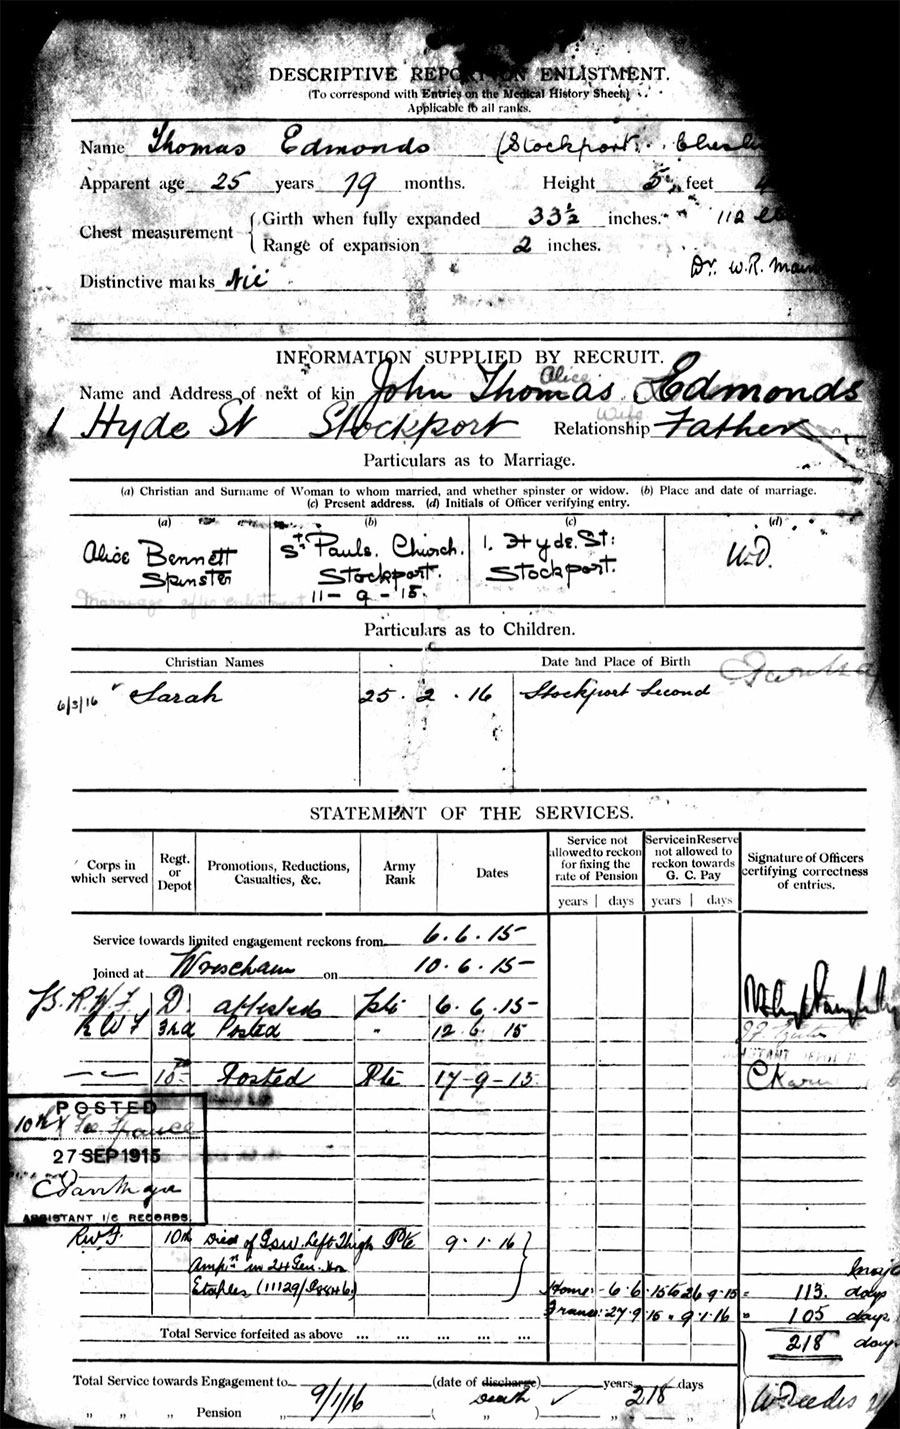 DESCRIPTIVE REPORT ON ENLISTMENT.
(To correspond with Entries on the Medical History Sheet)
Applicable to all ranks.
Name Thomas Edmonds (Stockport
Apparent age 25 years 19 months. Height 5 feet
Girth when fully expanded 33½ inches. 112
Chest measurement
Range of expansion 2 inches.
Dr. W.R.
Distinctive marks Nil
INFORMATION SUPPLIED BY RECRUIT.
Alice
Name and Address of next of kin John Thomas Edmonds
Wife
1 Hyde St Stockport Relationship Father
Particulars as to Marriage.
(a) Christian and Surname of Woman to whom married, and whether spinster or widow. (b) Place and date of marriage.
(c) Present address. (d) Initials of Officer verifying entry.
(a) (b) (c) (d)
Alice Bennett St Pauls. Church. 1. Hyde. St:
Spinster Stockport. Stockport.
Marriage after enlistment 11 - 9 - 15.
Particulars as to Children.
Christian Names Date and Place of Birth
6/3/16 Sarah 25 . 2 . 16 Stockport Second
STATEMENT OF THE SERVICES.
Corps in which served
Regt. or Depot
Promotions, Reductions, Casualties, &c.
Army Rank
Dates
Service not allowed to reckon for fixing the rate of Pension
Service in Reserve not allowed to reckon towards G. C. Pay
Signature of Officers certifying correctness of entries.
years days years days
Service towards limited engagement reckons from 6.6.15
Joined at Wrexham on 10.6.15
R.W.F D. attested Pte 6.6.15
R W F 3rd Posted " 12.6.15
— " — 10th Posted Pte 17-9-15
POSTED
10th France
27 SEP 1915
ASSISTANT I/C RECORDS.
R.W.F. 10th Died of Gsw. Left Thigh Pte 9.1.16
Ampn in 24 Gen. Hos
Etaples
Home: 6.6.15 to 26.9.15 = 113. days
France: 27.9.15 " 9.1.16 " 105 days
Total Service forfeited as above ... ... ... ... ...
218 days
Total Service towards Engagement to 9/1/16 (date of discharge) years 218 days
Death
" " " Pension " ( " ) " "